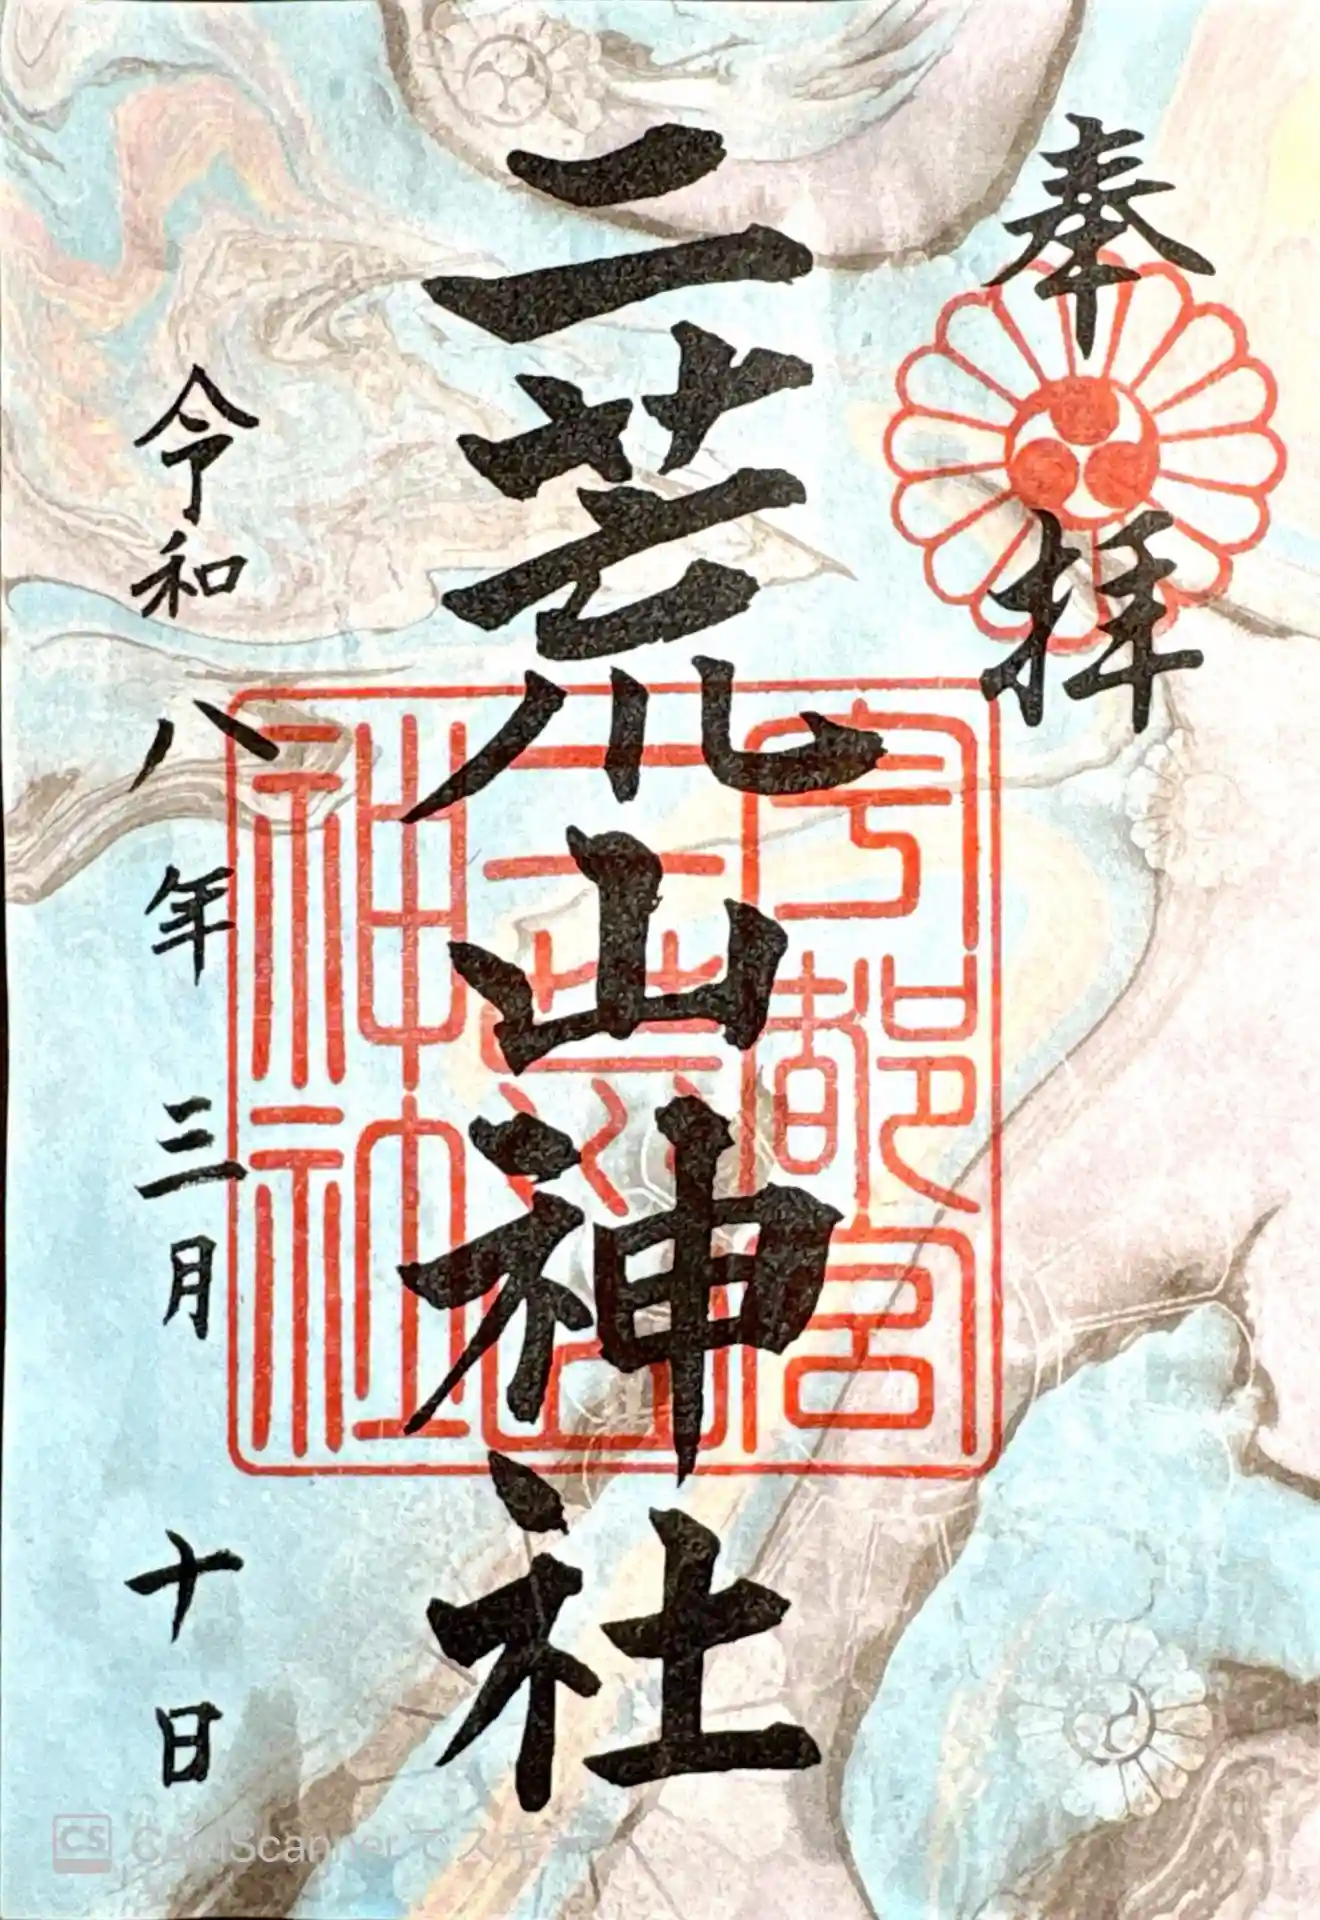 奉拝
二荒山神社
宇都宮
二荒山
神社
令和八年三月十日
CS CamScannerでスキャン